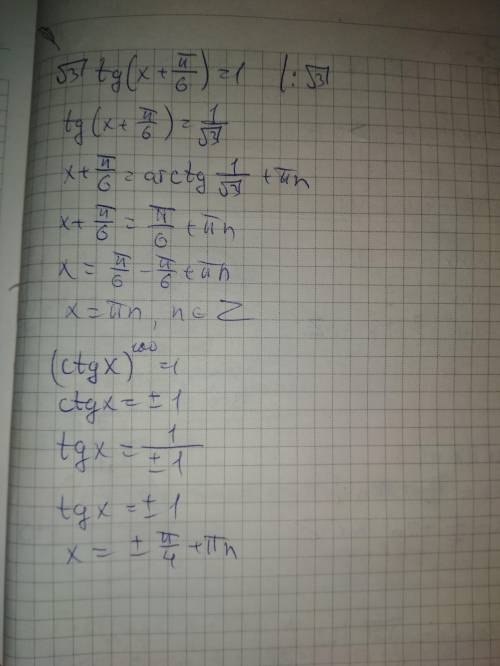 √3 tg(x + π/6) = 1 | : √3
tg(x + π/6) = 1/√3
x + π/6 = arctg 1/√3 + πn
x + π/6 = π/6 + πn
x = π/6 - π/6 + πn
x = πn, n ∈ Z
(ctgx)¹⁰⁰ = 1
ctgx = ± 1
tgx = 1/± 1
tgx = ± 1
x = ± π/4 + πn